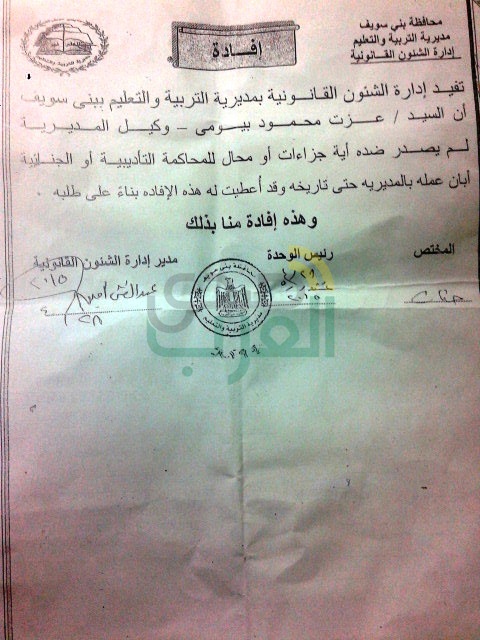 محافظة بني سويف
مديرية التربية والتعليم
إدارة الشئون القانونية
إفادة
تفيد إدارة الشئون القانونية بمديرية التربية والتعليم ببنى سويف
أن السيد / عزت محمود بيومى – وكيل المديرية
لم يصدر ضده أية جزاءات أو محال للمحاكمة التأديبية أو الجنائية
أبان عمله بالمديريه حتى تاريخه وقد أعطيت له هذه الإفاده بناءً على طلبه .
وهذه إفادة منا بذلك
المختص
رئيس الوحدة
مدير إدارة الشئون القانونية
محافظة بنى سويف
مديرية التربية والتعليم
٢٠١٥
٤/٢٨
صدى العرب